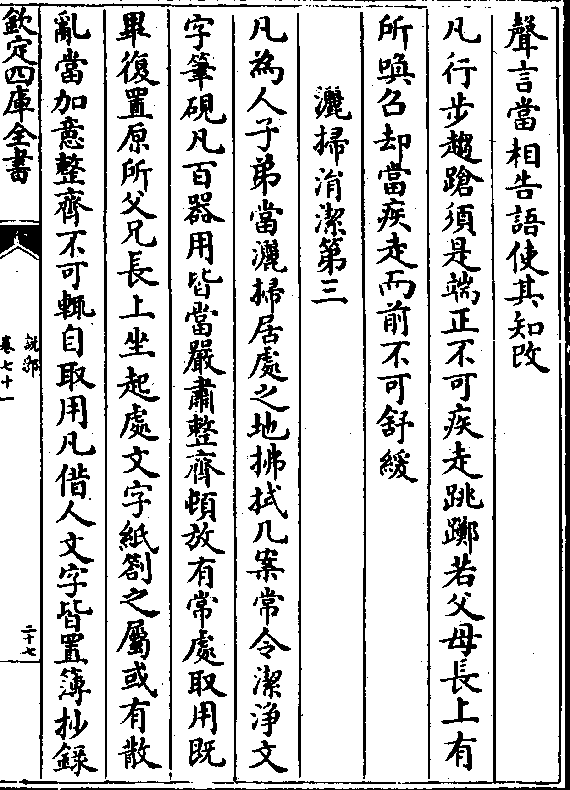 聲言當相告語使其知改
凡行步趨蹌須是端正不可疾走跳躑若父母長上有
所喚召却當疾走而前不可舒緩
灑掃涓潔第三
凡為人子弟當灑掃居處之地拂拭几案常令潔淨文
字筆硯凡百器用皆當嚴肅整齊頓放有常處取用既
畢復置原所父兄長上坐起處文字紙劄之屬或有散
亂當加意整齊不可輒自取用凡借人文字皆置簿抄錄
欽定四庫全書
說郛
卷七十一
二十七